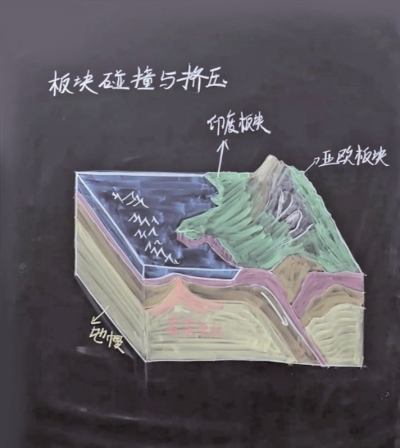 板块碰撞与挤压
印度板块
亚欧板块
地幔